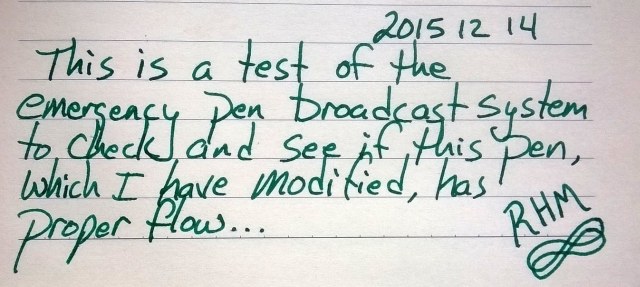 2015 12 14
This is a test of the
emergency pen broadcast system
to check and see if this pen,
which I have modified, has
proper flow...
RHM